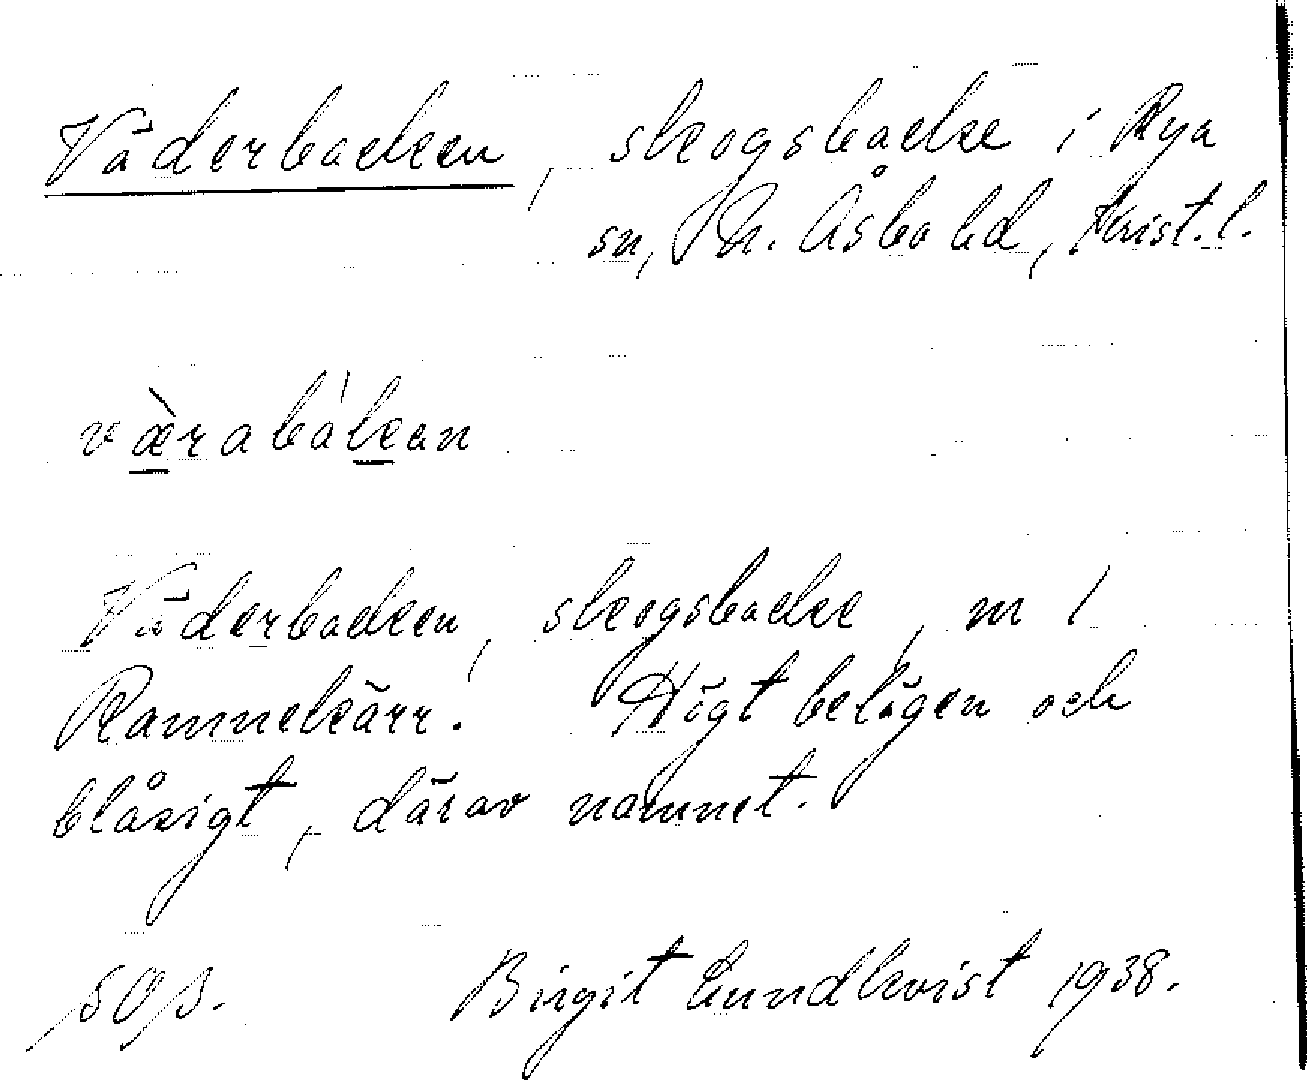 Väderbacken, skogsbacke i Rya
sn, N. Åsbo hd, Krist. l.
værabákan
Väderbacken, skogsbacke, m 1
Rammekärr. Högt belägen och
blåsigt, därav namnet.
Birgit Lundkvist 1938.